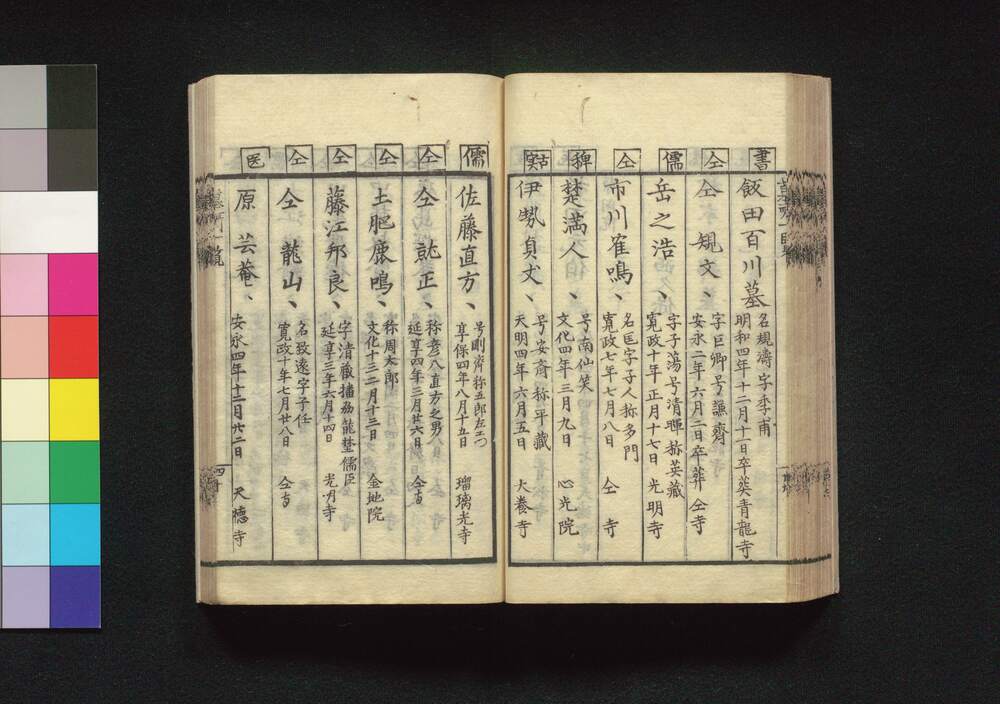 書
飯田百川墓
名規濤字季甫
明和四年十二月十一日卒葬青龍寺
仝
仝規文、
字巨卿号謙齋
安永二年六月二日卒葬仝寺
儒
岳之浩、
字子蕩号清暉称英藏
寛政十年正月十七日 光明寺
仝
市川寉鳴、
名匡字子人称多門
寛政七年七月八日 仝寺
稗
楚満人、
号南仙笑
文化四年三月九日 心光院
故実
伊勢貞丈、
号安斎称平藏
天明四年六月五日 大養寺
儒
佐藤直方、
号剛齊称五郎左エ门
享保四年八月十五日 瑠璃光寺
仝
仝就正、
称彦八直方之男
延享四年三月廿六日 仝寺
仝
土肥鹿鳴、
称周太郎
文化十三二月十三日 金地院
仝
藤江邦良、
字清藏播刕龍埜儒臣
延享三年六月十四日 光明寺
仝
仝龍山、
名致遠字子任
寛政十年七月廿八日 仝寺
医
原芸菴、
安永四年十二月廿二日 天徳寺